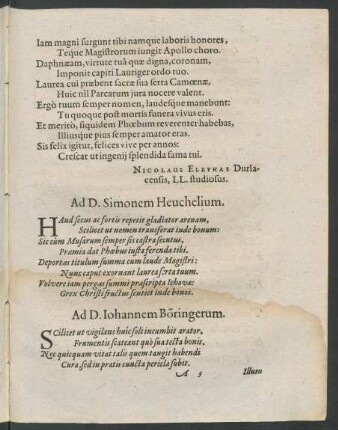 Iam magni surgunt tibi namque laboris honores,
Teque Magistrorum iungit Apollo choro.
Daphnæam, virtute tuâ quæ digna, coronam,
Imponit capiti Lauriger ordo tuo.
Laurea cui præbent sacræ sua serta Camœnæ,
Huic nil Parcarum jura nocere valent.
Ergò tuum semper nomen, laudesque manebunt:
Tu quoque post mortis funera vivus eris.
Et meritò, siquidem Phœbum reverenter habebas,
Illiusque pius semper amator eras.
Sis felix igitur, felices vive per annos:
Crescat ut ingenij splendida fama tui.
NICOLAUS ELEPHAS Durla-
censis, LL. studiosus.
Ad D. Simonem Heuchelium.
HAud secus ac fortis repetit gladiator arenam,
Scilicet ut nomen transferat inde bonum:
Sic cum Musarum semper sis castra secutus,
Præmia dat Phœbus iusta ferenda tibi.
Deportas titulum summa cum laude Magistri:
Nunc caput exornant laurea serta tuum.
Volvere iam pergas summi præscripta Iehovæ:
Grex Christi fructus sentiet inde bonos.
Ad D. Iohannem Böringerum.
SCilicet ut vigilans huic soli incumbit arator,
Frumentis scateant quò sua tecta bonis.
Nec quicquam vitat talis quem tangit habendi
Cura, sed in pratis cuncta pericla subit.
A 5 Illuso